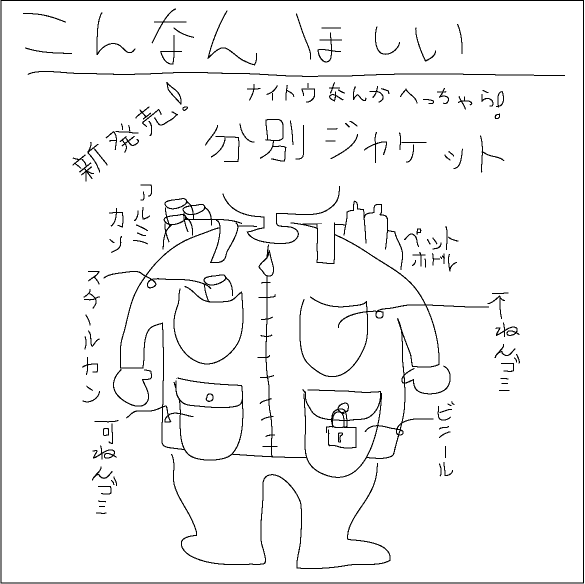 こんなん ほしい
新発売!
ナイトウ なんか へっちゃら!
分別ジャケット
アルミカン
ペットボトル
スチールカン
不ねんゴミ
可ねんゴミ
ビニール